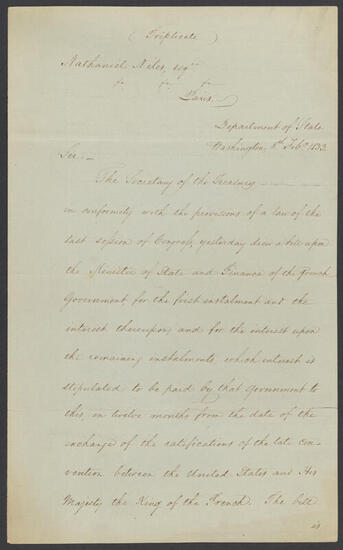 (Triplicate)
Nathaniel Niles, esqr.
" " "
Paris.
Department of State
Washington, 8th Feby. 1833.
Sir—
The Secretary of the Treasury
in conformity with the provisions of a law of the
last session of Congress, yesterday drew a bill upon
the Minister of State and Finance of the French
Government for the first instalment and the
interest thereupon, and for the interest upon
the remaining instalments, which interest is
stipulated to be paid by that Government to
this, in twelve months from the date of the
exchange of the ratifications of the late con-
vention between the United States and His
Majesty the King of the French. The bill
is